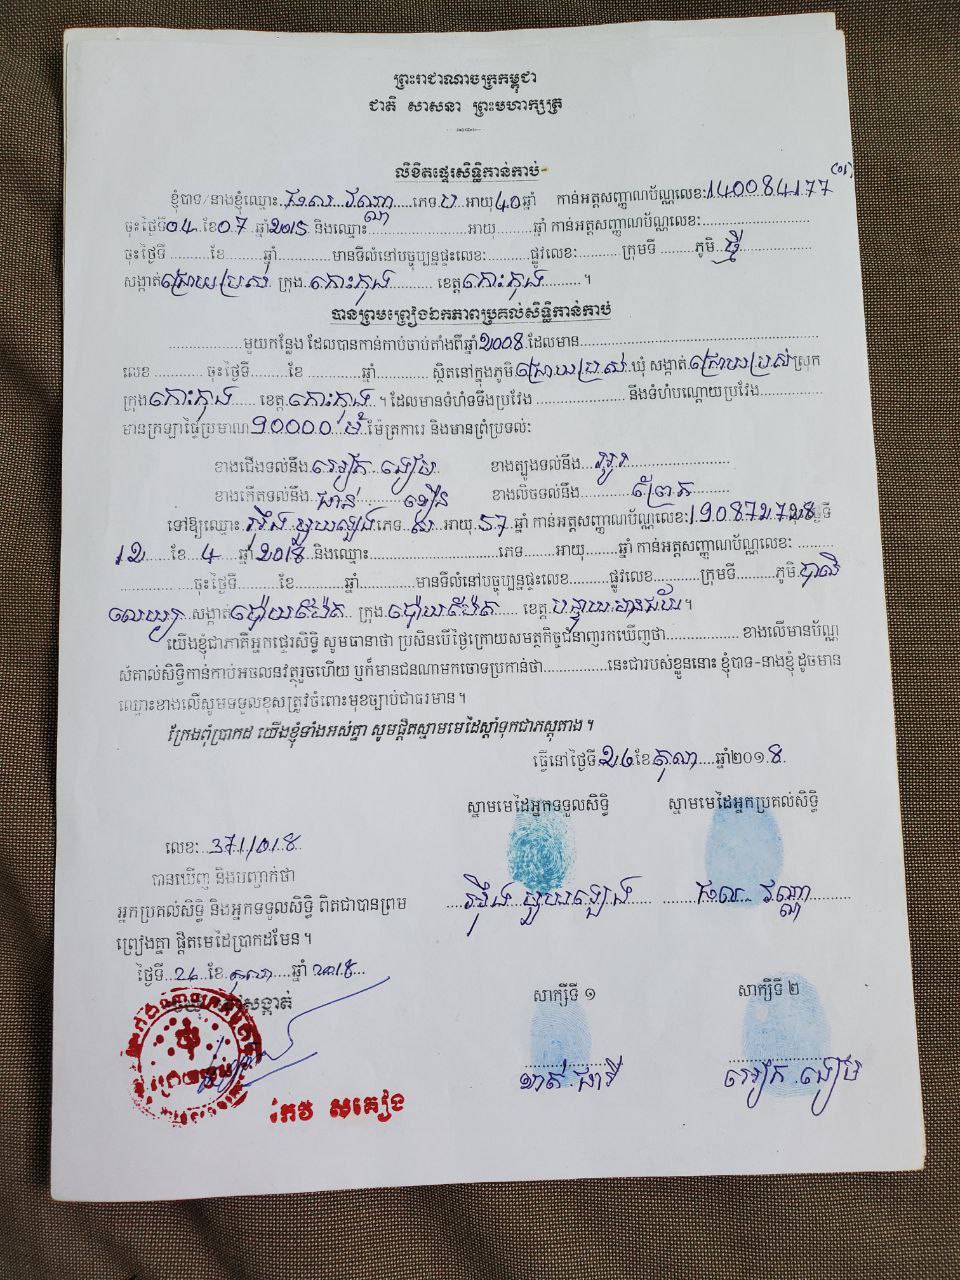 ព្រះរាជាណាចក្រកម្ពុជា
ជាតិ សាសនា ព្រះមហាក្សត្រ
លិខិតផ្ទេរសិទ្ធិកាន់កាប់
ខ្ញុំបាទ/នាងខ្ញុំឈ្មោះ ផល វណ្ណា ភេទ ប អាយុ 40 ឆ្នាំ កាន់អត្តសញ្ញាណប័ណ្ណលេខ: 140084177 (01)
ចុះថ្ងៃទី 04 ខែ 07 ឆ្នាំ 2015 និងឈ្មោះ អាយុ ឆ្នាំ កាន់អត្តសញ្ញាណប័ណ្ណលេខ:
ចុះថ្ងៃទី ខែ ឆ្នាំ មានទីលំនៅបច្ចុប្បន្នផ្ទះលេខ: ផ្លូវលេខ: ក្រុមទី ភូមិ ថ្មី
សង្កាត់ ជ្រោយប្រស់ ក្រុង កោះកុង ខេត្ត កោះកុង ។
បានព្រមព្រៀងឯកភាពប្រគល់សិទ្ធិកាន់កាប់
មួយកន្លែង ដែលបានកាន់កាប់ចាប់តាំងពីឆ្នាំ 2008 ដែលមាន
លេខ ចុះថ្ងៃទី ខែ ឆ្នាំ ស្ថិតនៅក្នុងភូមិ ជ្រោយប្រស់ ឃុំ សង្កាត់ ជ្រោយប្រស់ ស្រុក
ក្រុង កោះកុង ខេត្ត កោះកុង ។ ដែលមានទំហំទទឹងប្រវែង និងទំហំបណ្តោយប្រវែង
មានក្រឡាផ្ទៃប្រមាណ ១០០០០ ម៉ែត្រការេ និងមានព្រំប្រទល់:
ខាងជើងទល់នឹង អៀក ងៀម ខាងត្បូងទល់នឹង អូរ
ខាងកើតទល់នឹង ផាន់ ខាងលិចទល់នឹង ព្រែក
ទៅឱ្យឈ្មោះ ភេទ ស អាយុ 57 ឆ្នាំ កាន់អត្តសញ្ញាណប័ណ្ណលេខ: 190872728 ចុះថ្ងៃទី
12 ខែ 4 ឆ្នាំ 2018 និងឈ្មោះ ភេទ អាយុ ឆ្នាំ កាន់អត្តសញ្ញាណប័ណ្ណលេខ:
ចុះថ្ងៃទី ខែ ឆ្នាំ មានទីលំនៅបច្ចុប្បន្នផ្ទះលេខ ផ្លូវលេខ: ក្រុមទី ភូមិ បាលិ
លេយ្យ សង្កាត់ ប៉ោយប៉ែត ក្រុង ប៉ោយប៉ែត ខេត្ត បន្ទាយមានជ័យ ។
យើងខ្ញុំជាភាគីអ្នកផ្ទេរសិទ្ធិ សូមធានាថា ប្រសិនបើថ្ងៃក្រោយសមត្ថកិច្ចជំនាញរកឃើញថា ខាងលើមានប័ណ្ណ
សំគាល់សិទ្ធិកាន់កាប់អចលនវត្ថុរួចហើយ ឬក៏មានជនណាមកចោទប្រកាន់ថា នេះជារបស់ខ្លួននោះ ខ្ញុំបាទ-នាងខ្ញុំ ដូចមាន
ឈ្មោះខាងលើសូមទទួលខុសត្រូវចំពោះមុខច្បាប់ជាធរមាន ។
ក្រែងពុំប្រាកដ យើងខ្ញុំទាំងអស់គ្នា សូមផ្តិតស្នាមមេដៃស្តាំទុកជាភស្តុតាង ។
ធ្វើនៅថ្ងៃទី 26 ខែ តុលា ឆ្នាំ២០១8
ស្នាមមេដៃអ្នកទទួលសិទ្ធិ ស្នាមមេដៃអ្នកប្រគល់សិទ្ធិ
លេខ: 371/018
បានឃើញ និងបញ្ជាក់ថា
ផល វណ្ណា
អ្នកប្រគល់សិទ្ធិ និងអ្នកទទួលសិទ្ធិ ពិតជាបានព្រម
ព្រៀងគ្នា ផ្តិតមេដៃប្រាកដមែន ។
ថ្ងៃទី 26 ខែ តុលា ឆ្នាំ 2018
សាក្សីទី ១ សាក្សីទី ២
សង្កាត់
អៀក ងៀម
កែវ សគៀង